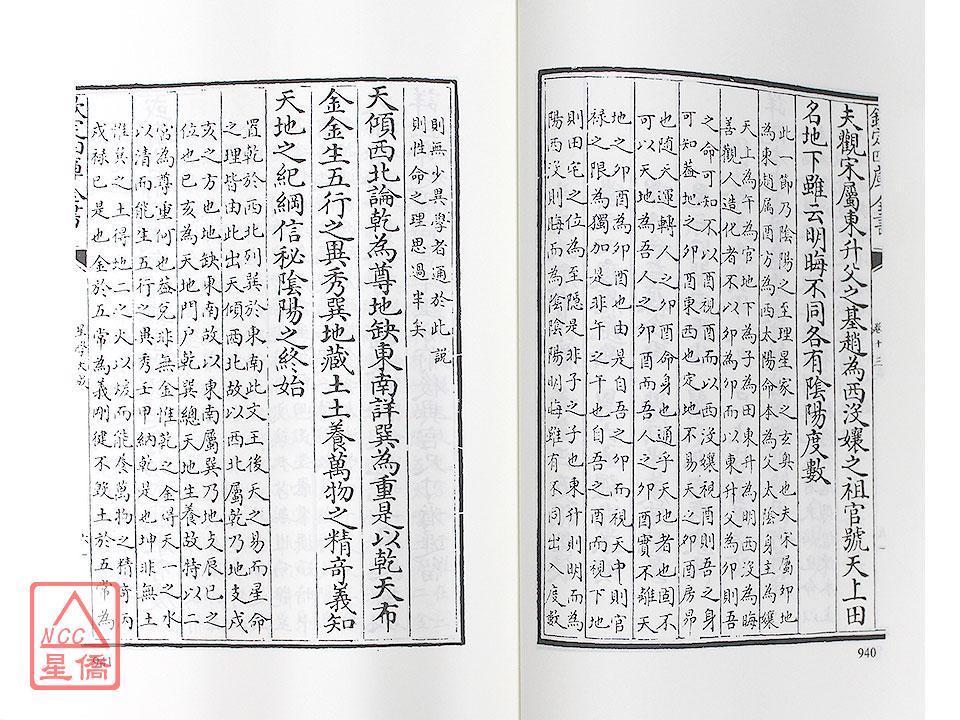 欽定四庫全書
卷十三
夫觀宋屬東升父之基趙為西沒孃之祖官號天上田
名地下雖云明晦不同各有陰陽度數
此一節乃陰陽之至理星家之玄奧也夫宋屬卯地
為東趙属酉方為西太陽命本為父太陰身主為孃
天上為午為官地下為子為田東升為明西沒為晦
善觀人造化者不以卯為卯而以東升父為卯則吾
之命可知不以酉視酉而以西沒孃視酉則吾之身
可知葢地之卯酉東西也定地不易天之卯酉房昴
也随天運轉人之卯酉命身也通乎天地者也此無
可以天地為吾人之卯酉而吾人之卯酉實不離天
地之卯酉為卯酉也由是自吾之卯而視天中則官
禄之限為獨加是非午之午也自吾之酉而視地下
則田宅之位為至隠是非子之子也東升則明而為
陽西沒則晦而為陰陰陽明晦雖有不同出入度數
940
則無少異學者通於此說
則性命之理思過半矣
天傾西北論乾為尊地缺東南詳巽為重是以乾天布
金金生五行之異秀巽地藏土土養萬物之精奇義知
天地之紀綱信秘陰陽之終始
置乾於西北列巽於東南此文王後天之易而星命
之理皆由此出天傾西北故以西北屬乾乃地支戌
亥之方也地缺東南故以東南屬巽乃地支辰巳之
位也巳亥為天地門户乾巽總天地生養故特以二
宫為尊重何也葢兌非無金惟乾之金得天一之水
以清而能生五行之異秀壬甲納乾是也坤非無土
惟巽之土得地二之火以煖而能養萬物之精奇丙
戌禄巳是也金於五常為義剛健不毀土於五常為
星學大成
欽定四庫全書
941
NCC
星僑